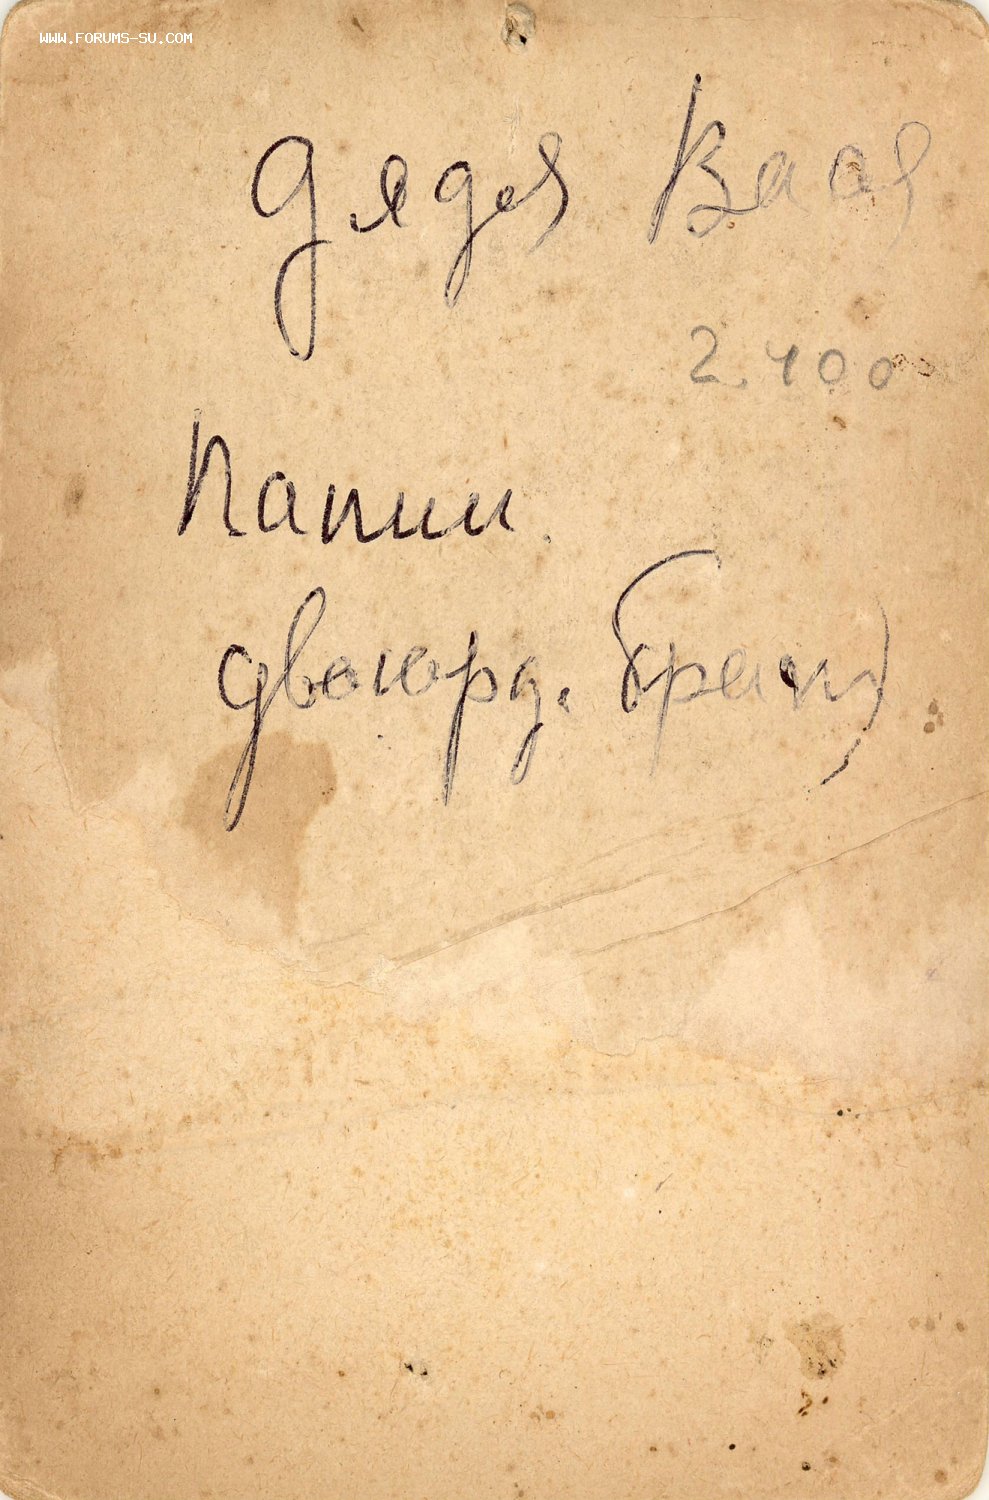 WWW.FORUMS-SU.COM
дядя Вася
2.400
Папин
двоюрд. брат)